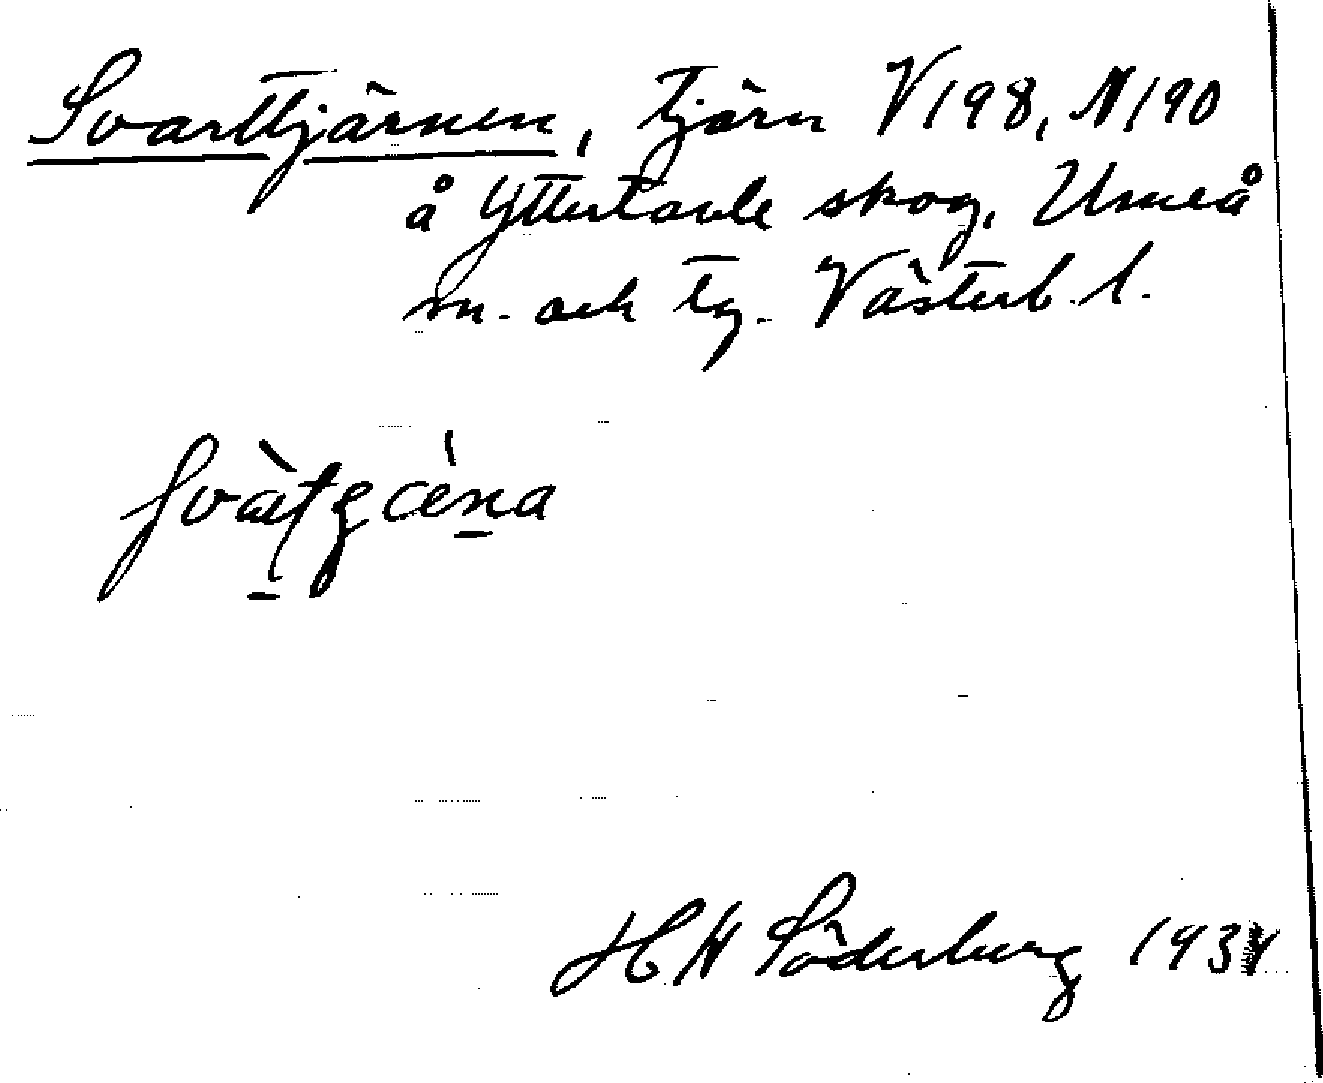 Svarttjärnen, tjärn V198, N190
å Yttertavle skog, Umeå
m. och tg. Västerb. l.
H W Söderberg